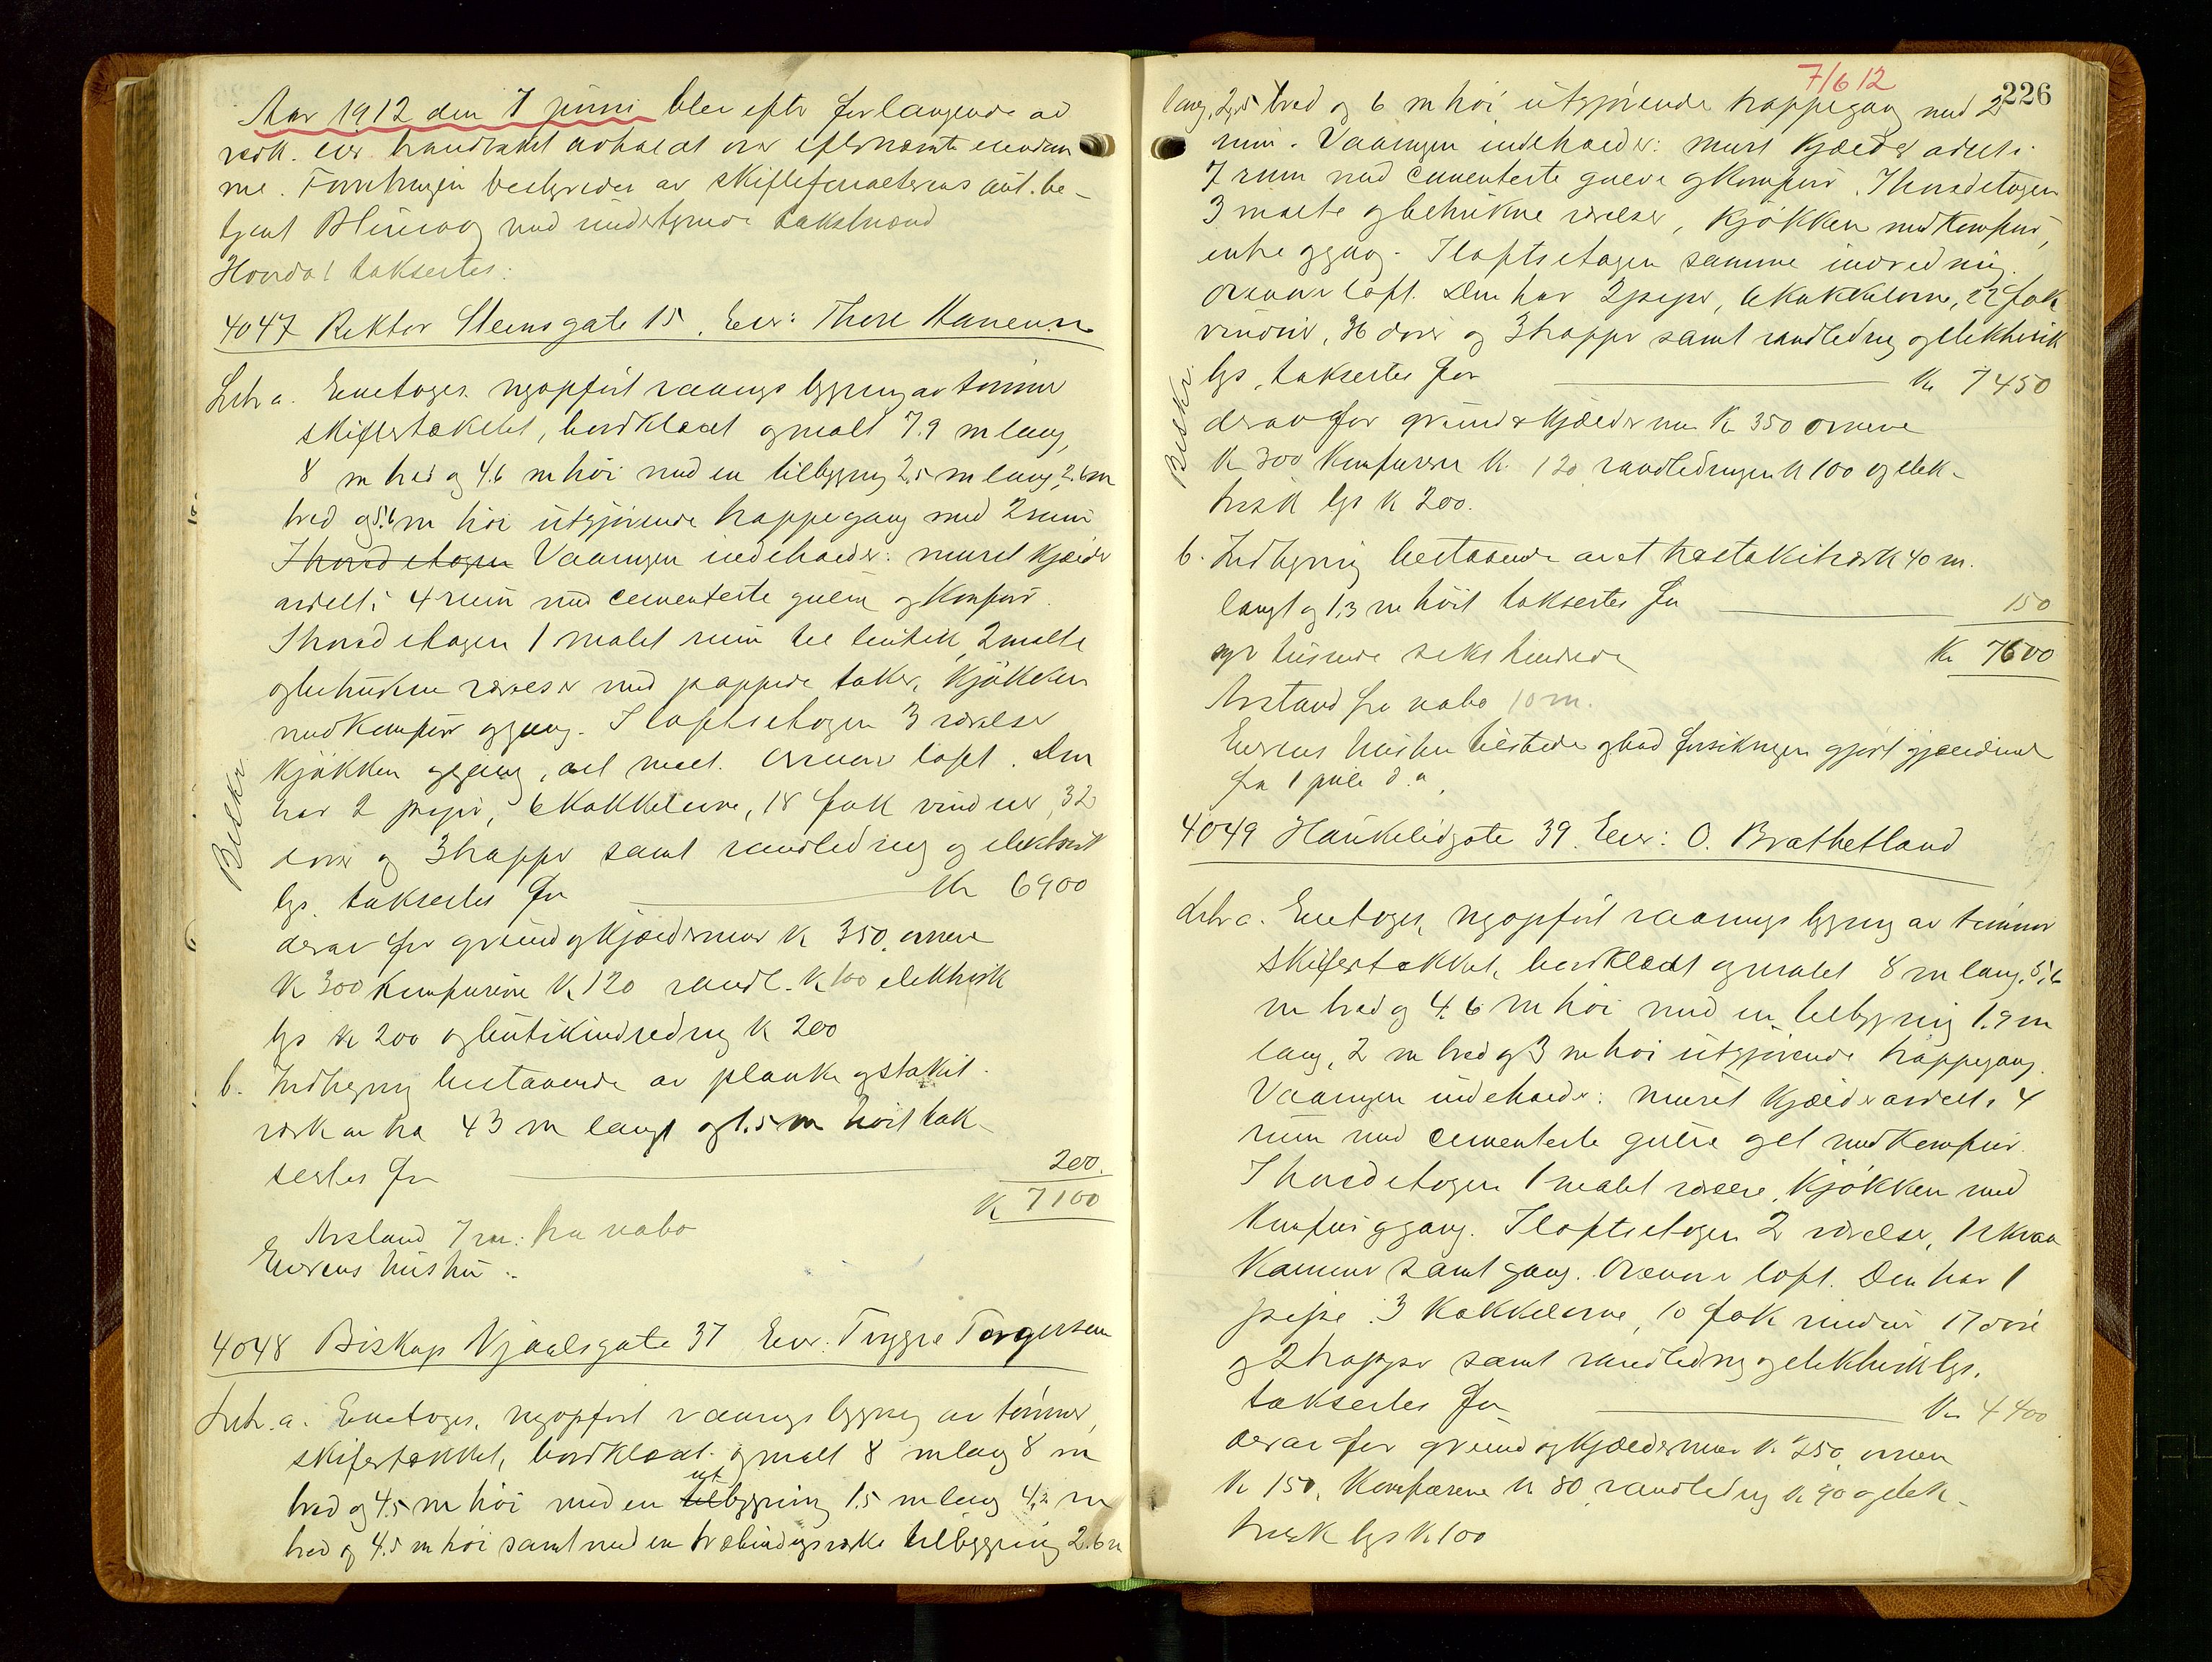 Aar 1912 den 7 juni blev efter forlangende av
vedk. eier branntakst avholdt over efternævnte eiendom
me. Forretningen bestyredes av skifteforvalterens aut. be-
tjent Blinvog med undertegnede takstmænd
Hovdal taksertes:
4047 Rektor Steensgate 15. Eier: Thore Hansen
Litr a. Enetages nyopført vaanings bygning av tømmer
skifertækket, bordklædt og malt 7.9 m lang,
8 m bred og 4.6 m høi med en tilbygning 2.5 m lang, 2.6 m
bred og 5.6 m høi utgjørende trappegang med 2 rum
I første etagen Vaaningen indeholder: muret kjælder
avdelt i 4 rum med cementerte gulve og komfur.
I første etagen 1 malet rum til butik, 2 malte
og betrukne værelser med pappede taker, kjøkken
med komfur og gang. I loftsetagen 3 værelser
kjøkken og gang, alt malt. Ovenover loft. Den
har 2 piper, 6 kakkelovne, 18 fak vinduer, 32
dører og 3 trapper samt vandledning og elektrisk
lys. taksertes for Kr 6900
derav for grund og kjældermur Kr 350. ovnene
Kr 300 komfurene Kr 120 vandl. Kr 100 elektrisk
lys Kr 200 og butikindredning Kr 200
b. Indhegning bestaaende av planke og stakit-
verk av træ 43 m langt og 1.5 m høit tak-
sertes for 200.
Kr 7100
Avstand 7 m. fra nabo
Eierens hustru
Beskr.
4048 Biskop Njaalsgate 37 Eier: Trygve Torgersen
Litr. a. Enetages, nyopført vaanings bygning av tømmer,
skifertækket, bordklædt og malt 8 m lang 8 m
bred og 4.5 m høi med en ut til bygning 1.5 m lang 4,2 m
bred og 4.5 m høi samt med en træbindingsverks tilbygning 2.6 m
7/6 12
226
lang, 2,5 bred og 6 m høi, utgjørende trappegang med 2
rum. Vaaningen indeholder: muret kjælder avdelt i
7 rum med cementerte gulve og komfur. I første etagen
3 malte og betrukne værelser, kjøkken med komfur,
entre og gang. I loftsetagen samme indredning.
Ovenover loft. Den har 2 piper, 6 kakkelovne, 22 fak
vinduer, 36 dører og 3 trapper samt vandledning og elektrisk
lys, taksertes for Kr 7450
derav for grund & kjældermur Kr 350 ovnene
Kr 300 komfurene Kr. 120 vandledningen Kr 100 og elek-
trisk lys Kr 200.
Beskr.
b. Indhegning bestaaende av et træstakitverk 40 m.
langt og 1,3 m høit taksertes for 150
syv tusende seks hundrede Kr 7600
Avstand fra nabo 10 m.
Eierens hustru tilstede og bad forsikringen gjort gjældende
fra 1 juli d.a.
4049 Haukelidgate 39. Eier: O. Brathetland
Litr a. Enetages, nyopført vaanings bygning av tømmer
skifertækket, bordklædt og malet 8 m lang, 5,6
m bred og 4.6 m høi med en tilbygning 1.9 m
lang, 2 m bred og 3 m høi utgjørende trappegang.
Vaaningen indeholder: muret kjælder avdelt i 4
rum med cementerte gulve og et med komfur.
I første etagen 1 malet værelse, kjøkken med
komfur og gang. I loftsetagen 2 værelser, 1 skraa
kammer samt gang. Ovenover loft. Den har 1
pipe 3 kakkelovne, 10 fak vinduer 17 dører
og 2 trapper samt vandledning og elektrisk lys,
taksertes for Kr 4400
derav for grund og kjældermur Kr 250, ovnene
Kr 150, komfurene Kr 80 vandledning Kr 90 og elek-
trisk lys Kr 100